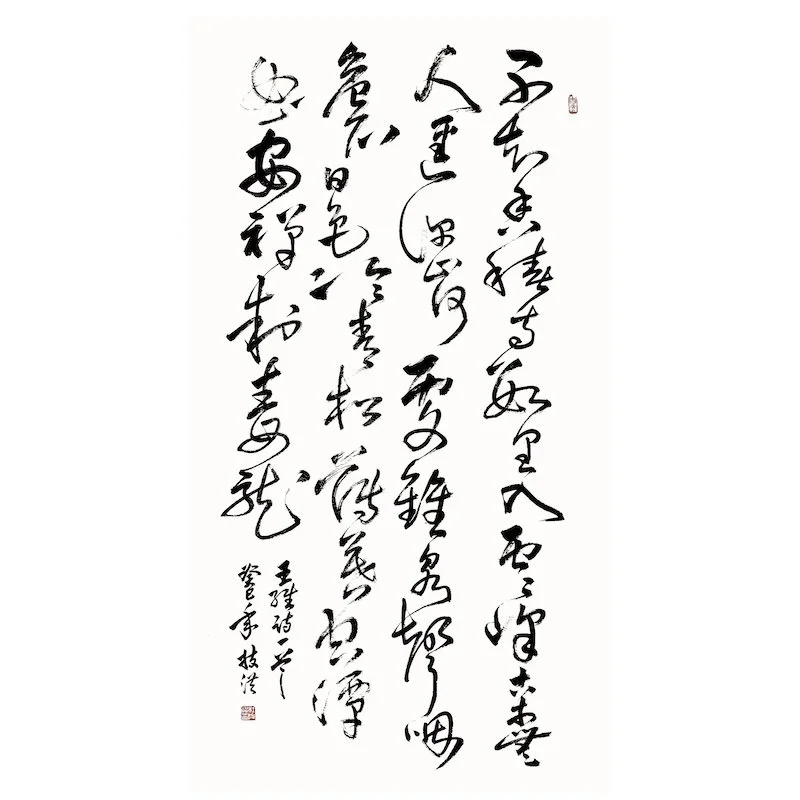 不知香積寺數里入雲峰古木無
人逕深山何處鐘泉聲咽
危石日色冷青松薄暮空潭
曲安禪制毒龍
王維詩一首
癸巳年